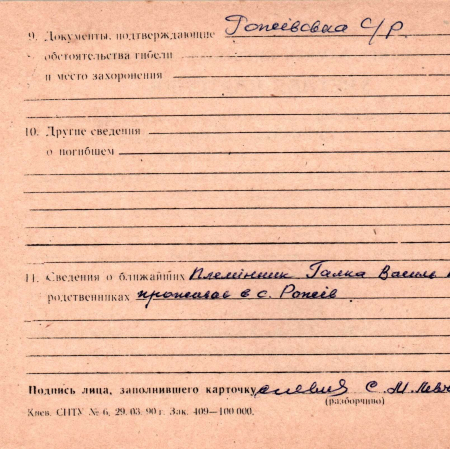 9. Документы, подтверждающие Гопеївська С/Р
обстоятельства гибели
и место захоронения
10. Другие сведения
о погибшем
11. Сведения о ближайших Племінник Галка Василь
родственниках проживає в с. Ропеїв
Подпись лица, заполнившего карточку С. М.
(разборчиво)
Киев. СПТУ № 6, 29. 03. 90 г. Зак. 409—100 000.